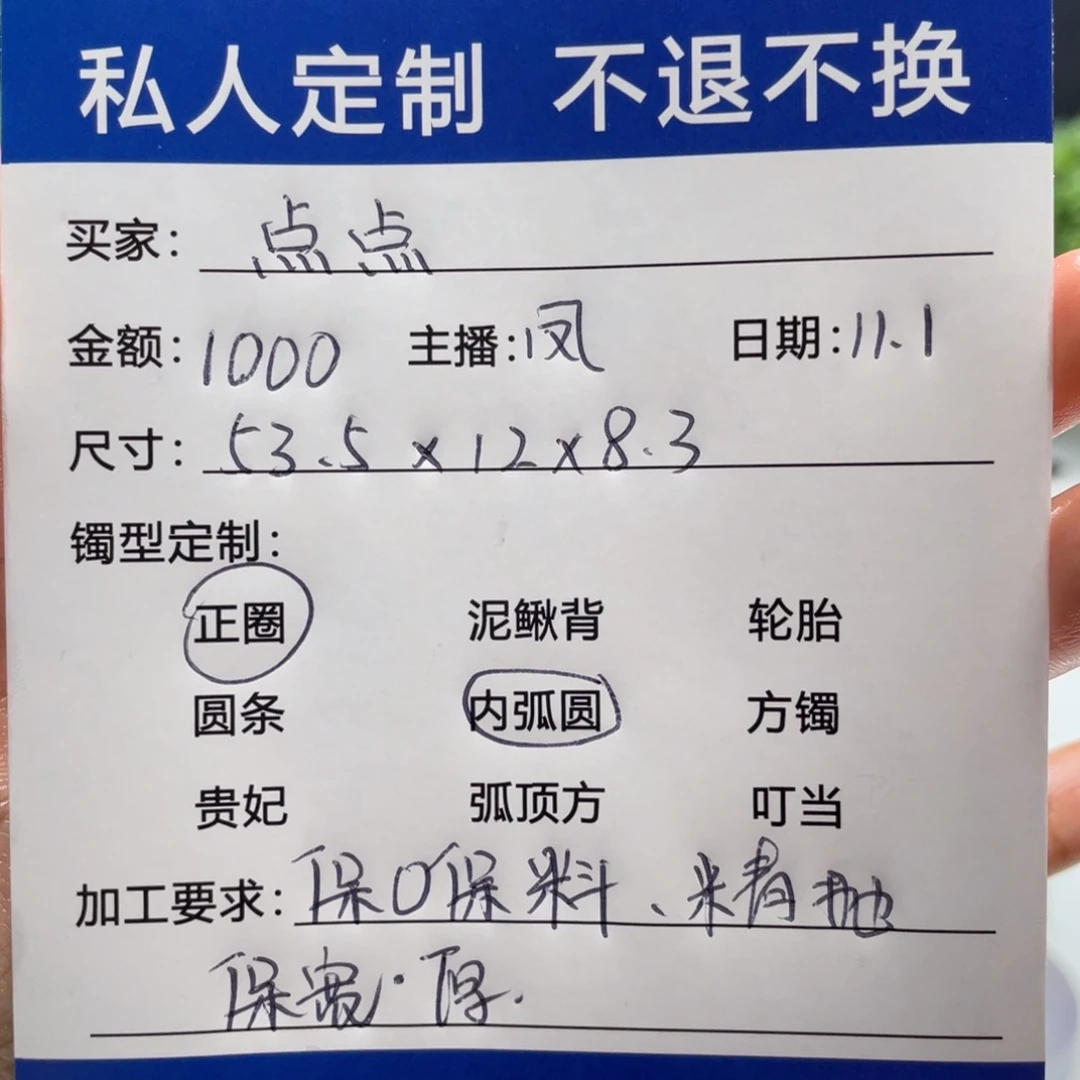 私人定制 不退不换
买家：点点
金额：1000 主播：凤 日期：11.1
尺寸：53.5×12×8.3
镯型定制：
正圈 泥鳅背 轮胎
圆条 内弧圆 方镯
贵妃 弧顶方 叮当
加工要求：保0保料、精抛
保宽·厚.